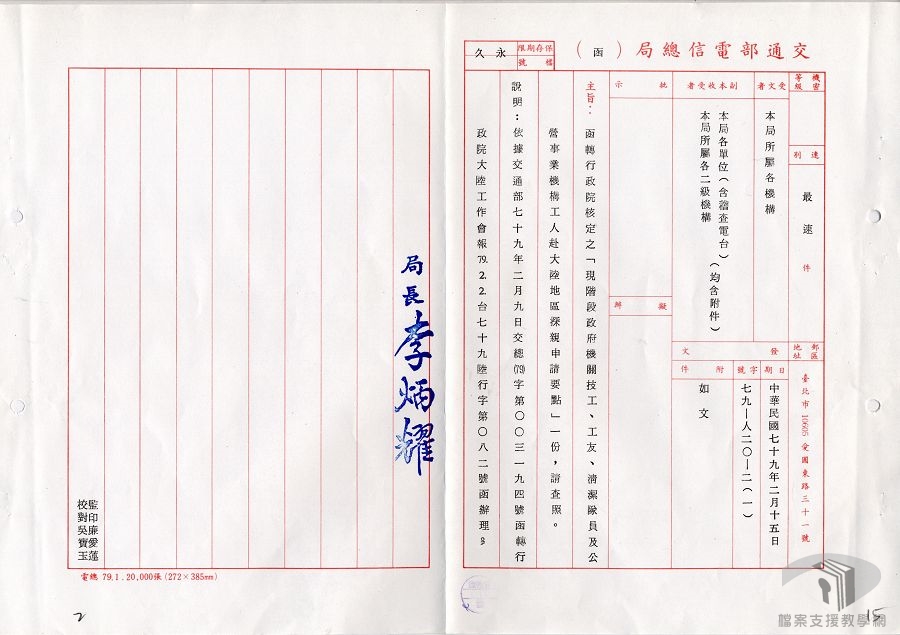 交通部電信總局（函）
保存期限 永久
檔號
機密等級
速別 最速件
郵區地址 臺北市10605愛國東路三十一號
受文者 本局所屬各機構
副本收受者 本局各單位（含稽查電台）
本局所屬各二級機構
（均含附件）
發文
日期 中華民國七十九年二月十五日
字號 七九—人二〇—二（一）
附件 如文
批示
擬辦
主旨：函轉行政院核定之「現階段政府機關技工、工友、清潔隊員及公
營事業機構工人赴大陸地區探親申請要點」一份，請查照。
說明：依據交通部七十九年二月九日交總(79)字第〇〇三一九四號函轉行
政院大陸工作會報79.2.2.台七十九陸行字第〇八二號函辦理。
局長 李炳耀
監印廉愛蓮
校對吳寶玉
電總 79.1.20,000張(272×385mm)
2
15
檔案支援教學網